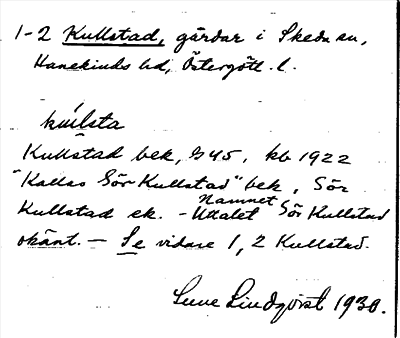 1-2 Kullstad, gårdar i Skeda sn,
Hanekinds hd, Östergötl. l.
kúlsta
Kullstad bek, GEK 45, kb 1922
"Kallas Sör Kullstad" bek, Sör
Kullstad ek. - Namnet Sör Kullstad
okänt. — Se vidare 1, 2 Kullstad.
Sune Lindqvist 1930.